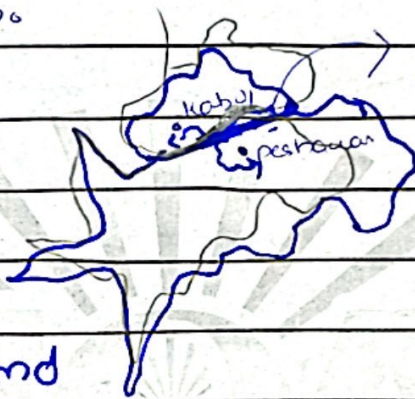 Kabul
peshawar
nd